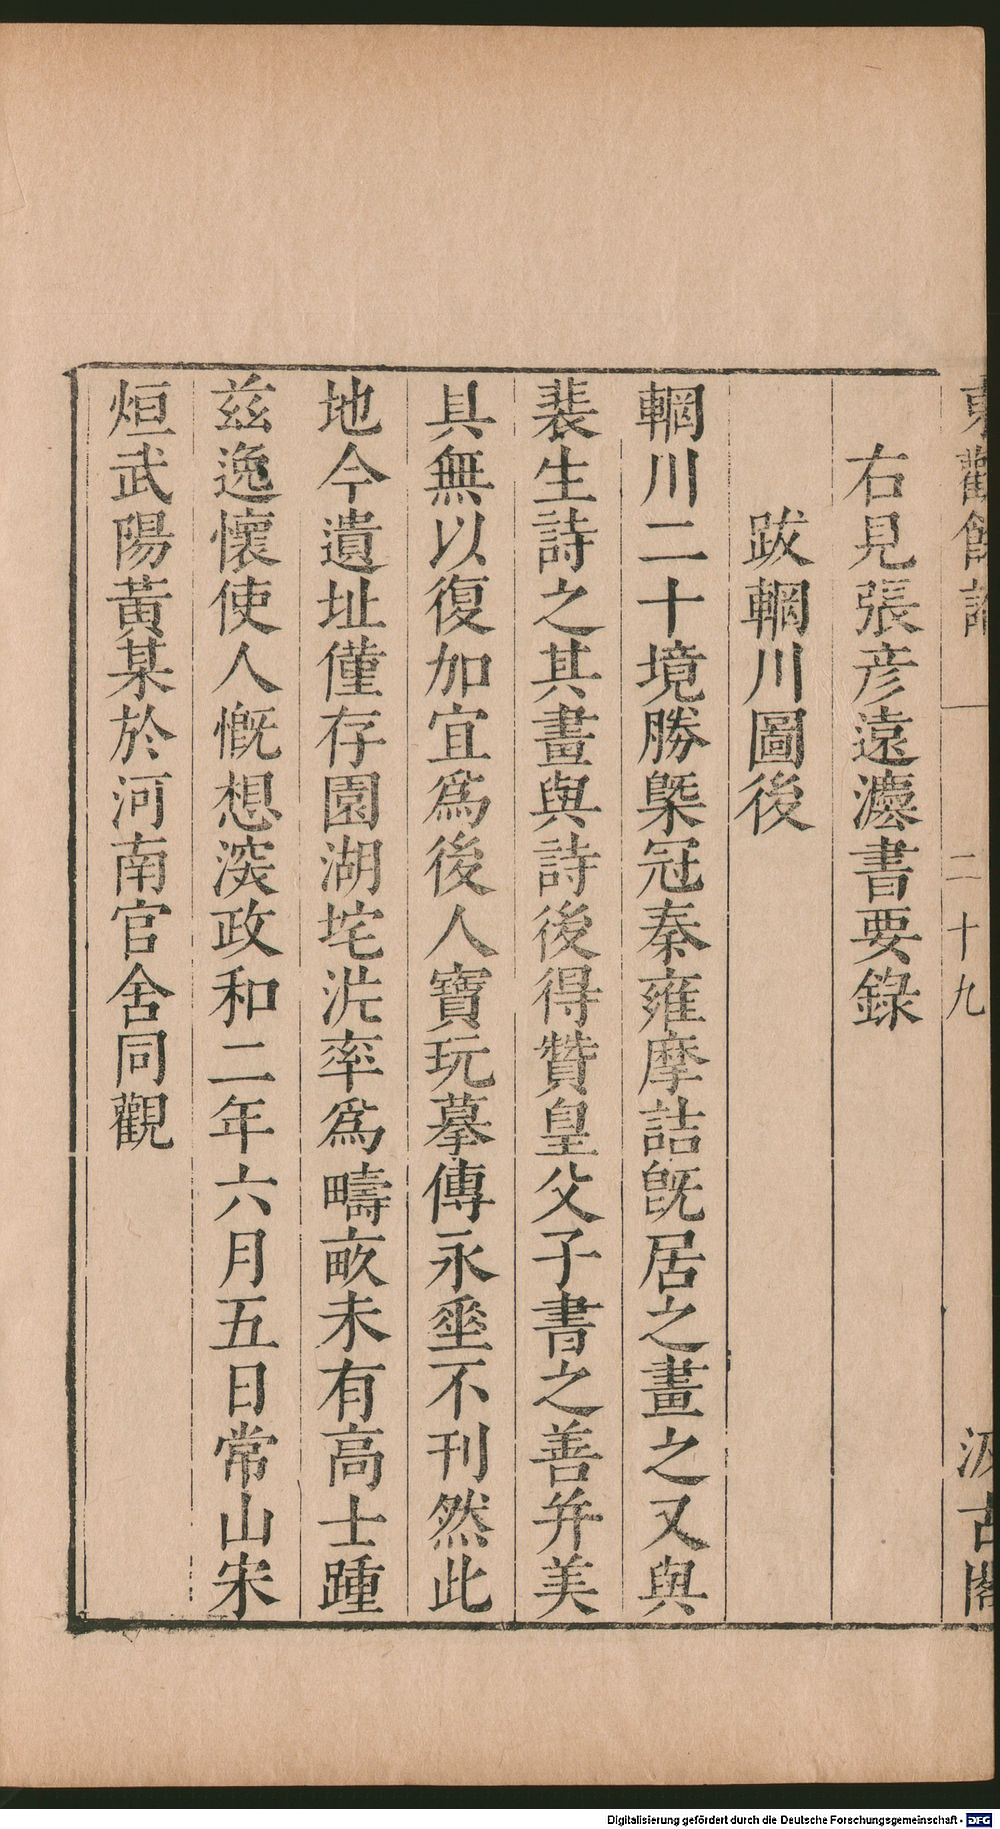 東觀餘論 一 二十九 汲古閣
右見張彥遠灋書要錄
跋輞川圖後
輞川二十境勝槩冠秦雍摩詰旣居之畫之又與
裴生詩之其畫與詩後得贊皇父子書之善幷美
具無以復加宜爲後人寶玩摹傳永垂不刊然此
地今遺址僅存園湖垞沜率爲疇畝未有高士踵
茲逸懷使人慨想湥政和二年六月五日常山宋
烜武陽黃某於河南官舍同觀
Digitalisierung gefördert durch die Deutsche Forschungsgemeinschaft - DFG